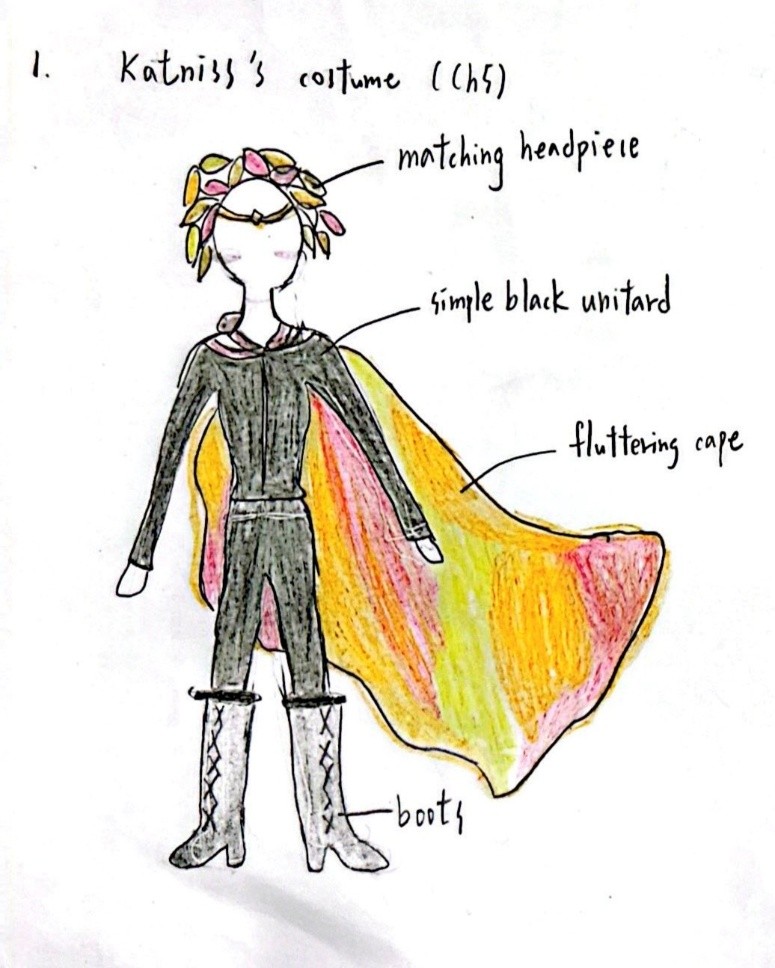 1. Katniss's costume (Ch5)
matching headpiece
simple black unitard
fluttering cape
boots